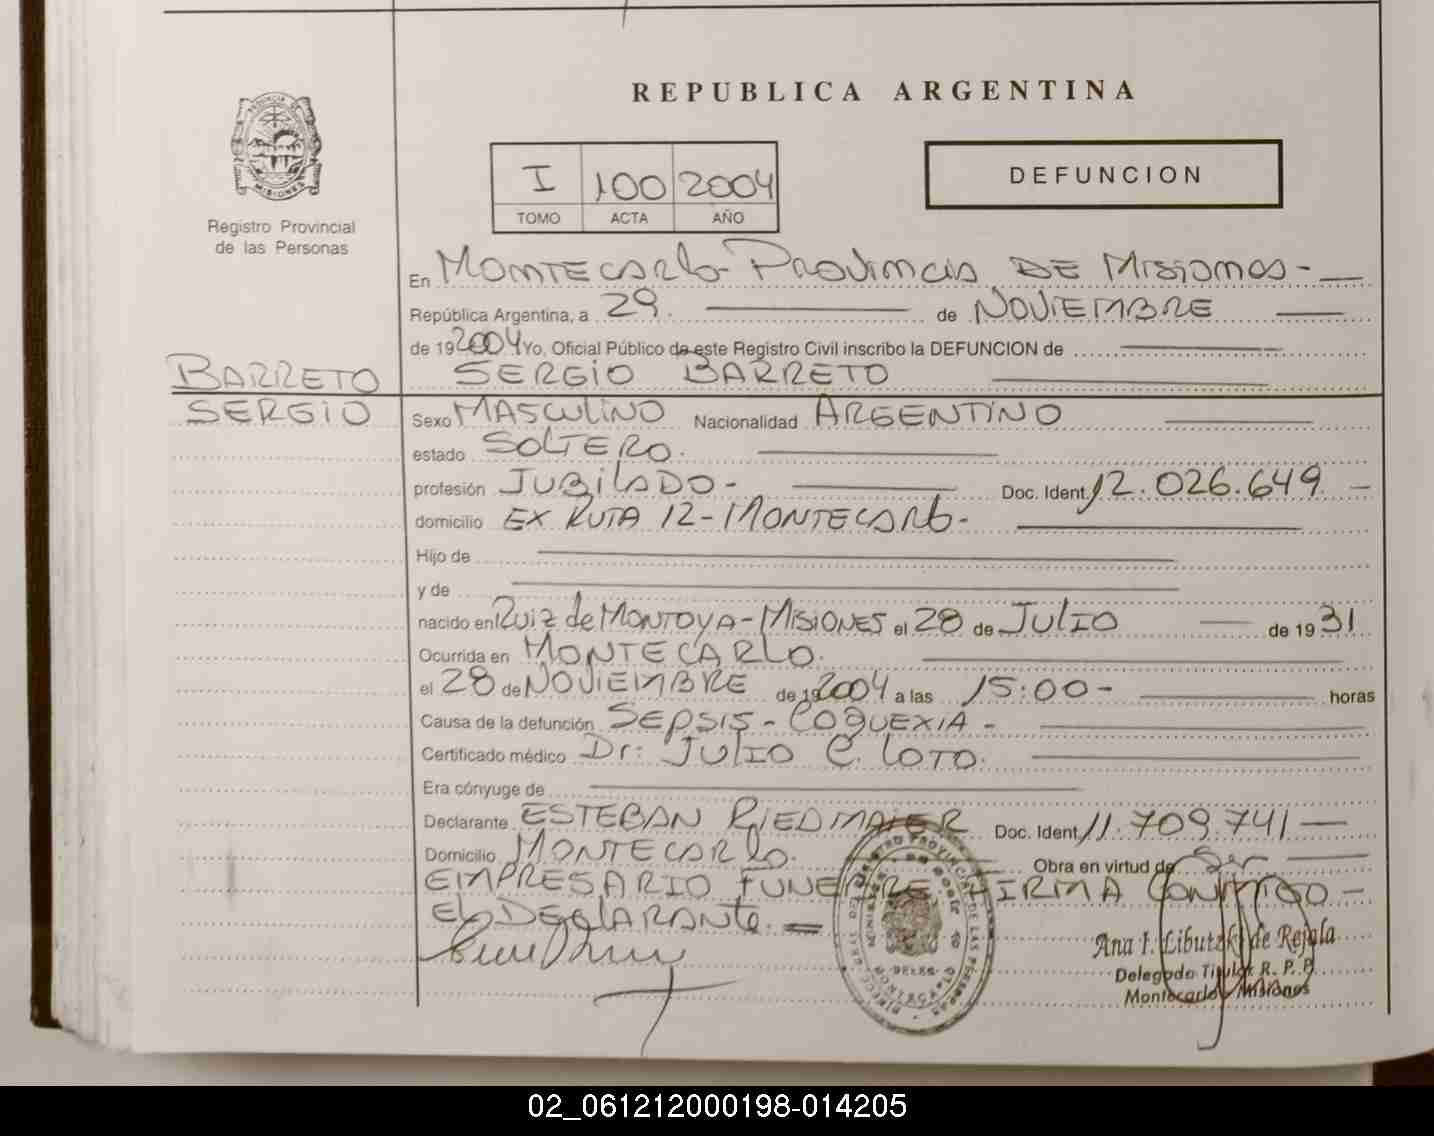 REPUBLICA ARGENTINA
PROVINCIA DE
MISIONES
Registro Provincial
de las Personas
I 100 2004
TOMO ACTA AÑO
DEFUNCION
En MONTECARLO - PROVINCIA DE MISIONES -
República Argentina, a 29 de NOVIEMBRE
de 192004 Yo, Oficial Público de este Registro Civil inscribo la DEFUNCION de
SERGIO BARRETO
BARRETO
SERGIO
Sexo MASCULINO Nacionalidad ARGENTINO
estado SOLTERO.
profesión JUBILADO - Doc. Ident. 12.026.649 -
domicilio EX RUTA 12 - MONTECARLO -
Hijo de
y de
nacido en Ruiz de MONTOYA - MISIONES el 28 de JULIO de 19 31
Ocurrida en MONTECARLO.
el 28 de NOVIEMBRE de 192004 a las 15:00 - horas
Causa de la defunción SEPSIS - COQUEXIA -
Certificado médico Dr: JULIO C. LOTO.
Era cónyuge de
Declarante ESTEBAN RIEDMAIER Doc. Ident. 11.709.741 -
Domicilio MONTECARLO. Obra en virtud de Ser
EMPRESARIO FUNEBRE FIRMA CONMIGO -
EL DECLARANTE. =
Ana I. Libutzki de Rejala
Delegado Titular R. P. P.
Montecarlo - Misiones
02_061212000198-014205